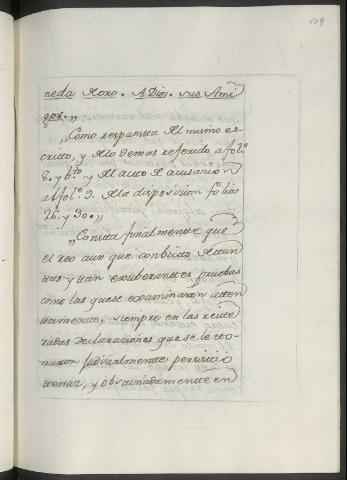 109
neda Moro. A Dios. sus Ami
gos.,,
,,Como respuesta del mismo es-
crito, y de lo demas referido al fol.º
8. y b.to y del auto de acusacion
al fol.º 9. de la disposicion folios
26. y 30.,,
,,Consta finalmente que
el reo aun que conbicto de tan
tas y tan exuberantes pruebas
como las que se examinaron atten
tamente, siempre en las reite
radas declaraziones que se le to-
maron judizialmente persistió
tenaz, y obstinadamente en